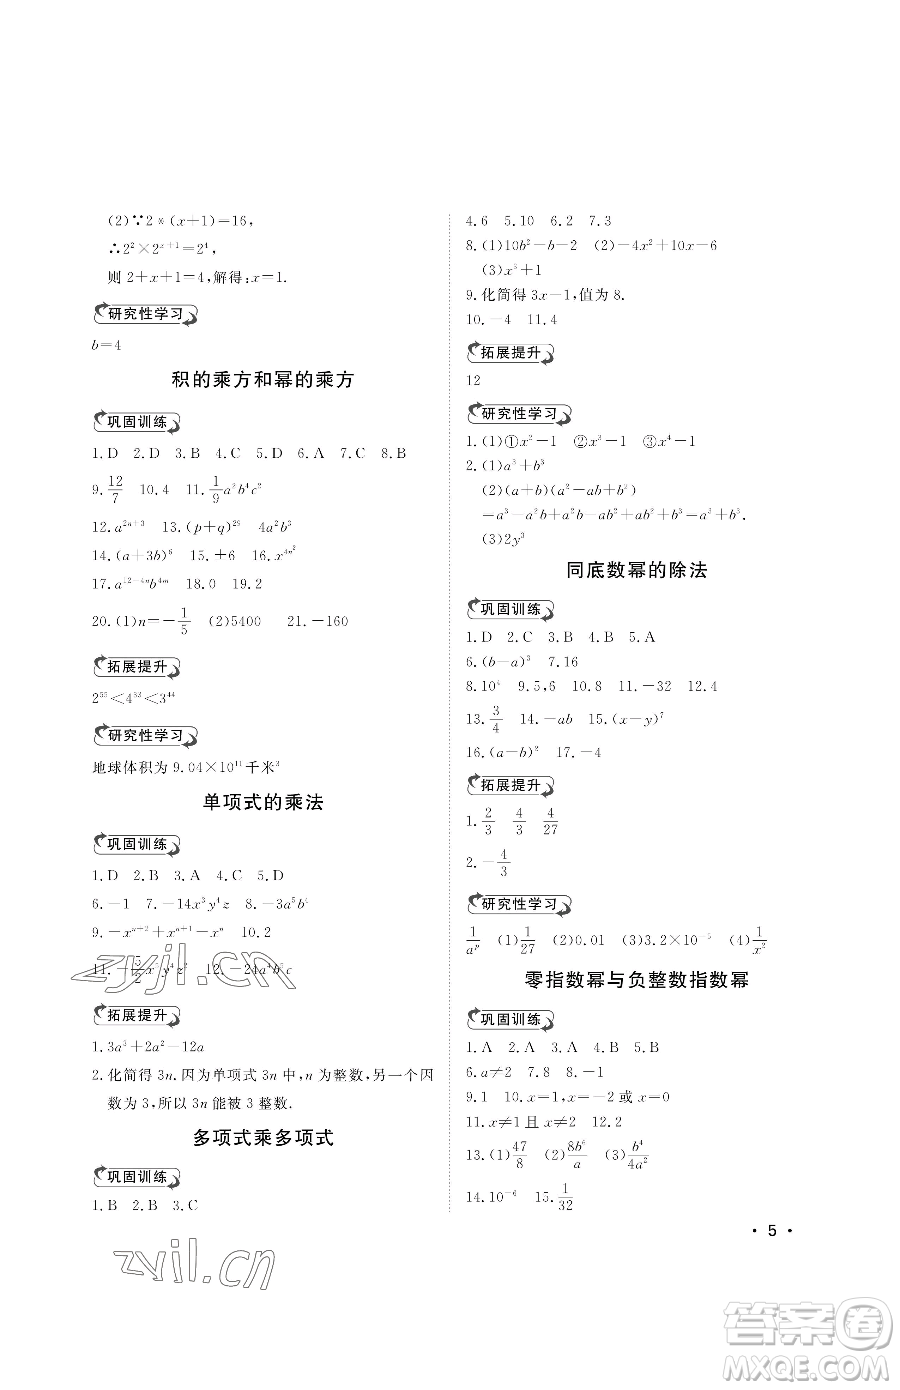 (2)∵2※(x+1)=16,
∴2²×2ˣ⁺¹=2⁴,
则 2+x+1=4,解得:x=1.
研究性学习
b=4
积的乘方和幂的乘方
巩固训练
1.D 2.D 3.B 4.C 5.D 6.A 7.C 8.B
9. 12/7 10.4 11. 1/9 a²b⁴c²
12.a²ⁿ⁺³ 13.(p+q)²⁹ 4a²b³
14.(a+3b)⁶ 15.±6 16.x^(4n²)
17.a^(12-4n)b^(4m) 18.0 19.2
20.(1)n=-1/5 (2)5400 21.-160
拓展提升
2⁵⁵<4³³<3⁴⁴
研究性学习
地球体积为 9.04×10¹¹千米³
单项式的乘法
巩固训练
1.D 2.B 3.A 4.C 5.D
6.-1 7.-14x³y⁴z 8.-3a⁵b⁴
9.-xⁿ⁺²+xⁿ⁺¹-xⁿ 10.2
11.-5/2 12.-24a⁴b⁵c
拓展提升
1.3a³+2a²-12a
2.化简得 3n.因为单项式 3n 中,n 为整数,另一个因
数为 3,所以 3n 能被 3 整数.
多项式乘多项式
巩固训练
1.B 2.B 3.C
4.6 5.10 6.2 7.3
8.(1)10b²-b-2 (2)-4x²+10x-6
(3)x³+1
9.化简得 3x-1,值为 8.
10.-4 11.4
拓展提升
12
研究性学习
1.(1)①x²-1 ②x³-1 ③x⁴-1
2.(1)a³+b³
(2)(a+b)(a²-ab+b²)
=a³-a²b+ab²+a²b-ab²+b³=a³+b³.
(3)2y³
同底数幂的除法
巩固训练
1.D 2.C 3.B 4.B 5.A
6.(b-a)³ 7.16
8.10⁴ 9.5,6 10.8 11.-32 12.4
13. 3/4 14.-ab 15.(x-y)⁷
16.(a-b)² 17.-4
拓展提升
1. 2/3 4/3 4/27
2.-4/3
研究性学习
1/aᵖ (1)1/27 (2)0.01 (3)3.2×10⁻⁵ (4)1/x²
零指数幂与负整数指数幂
巩固训练
1.A 2.A 3.A 4.B 5.B
6.a≠2 7.8 8.-1
9.1 10.x=1,x=-2 或 x=0
11.x≠1 且 x≠-2 12.2
13.(1)47/8 (2)8b⁶/a (3)b⁴/4a²
14.10⁻⁶ 15. 1/32
• 5 •
zyjl.cn
zyjl.cn
答案圈
MXQE.COM